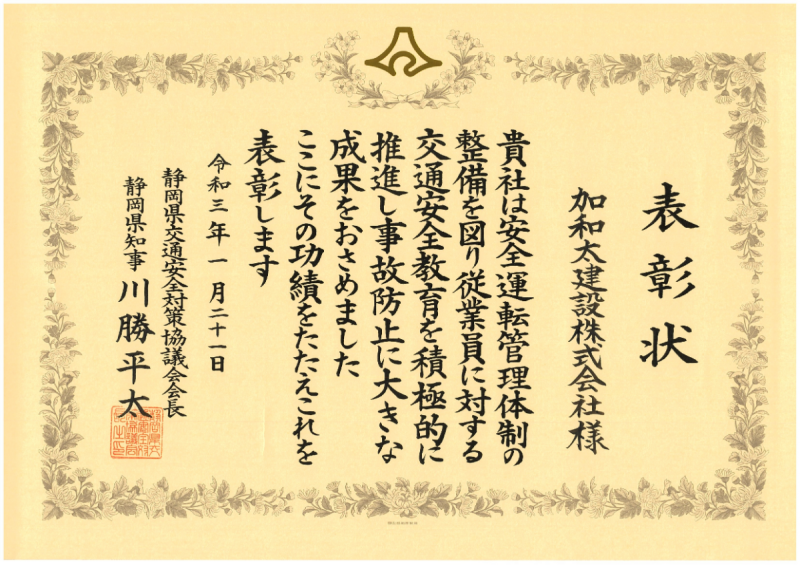 表彰状
加和太建設株式会社様
貴社は安全運転管理体制の
整備を図り従業員に対する
交通安全教育を積極的に
推進し事故防止に大きな
成果をおさめました
ここにその功績をたたえこれを
表彰します
令和三年一月二十一日
静岡県交通安全対策協議会会長
静岡県知事 川勝平太